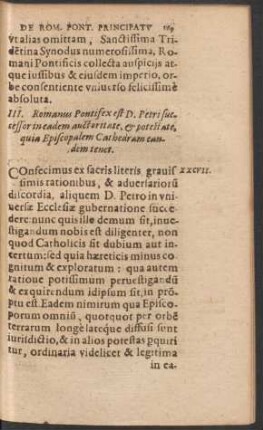 DE ROM. PONT. PRINCIPATV
vt alias omittam, Sanctissima Tri-
dētina Synodus numerosissima, Ro-
mani Pontificis collecta auspicijs at-
que iussibus & eiusdem imperio, or-
be consentiente vniuerso felicissimè
absoluta.
III. Romanus Pontifex est D. Petri suc-
cessor in eadem auctoritate, & potestate,
quia Episcopalem Cathedram ean-
dem tenet.
COnfecimus ex sacris literis grauis XXVII.
simis rationibus, & aduersariorū
discordia, aliquem D. Petro in vni-
uersæ Ecclesiæ gubernatione succe-
dere: nunc quis ille demum sit, inue-
stigandum nobis est diligenter, non
quod Catholicis sit dubium aut in-
certum: sed quia hæreticis minus co-
gnitum & exploratum: qua autem
ratione potissimum peruestigandū
& exquirendum idipsum sit, in prō-
ptu est. Eadem nimirum qua Episco-
porum omniū, quotquot per orbē
terrarum longè lateque diffusi sunt
iurisdictio, & in alios potestas pquiri
tur, ordinaria videlicet & legitima
in ea-